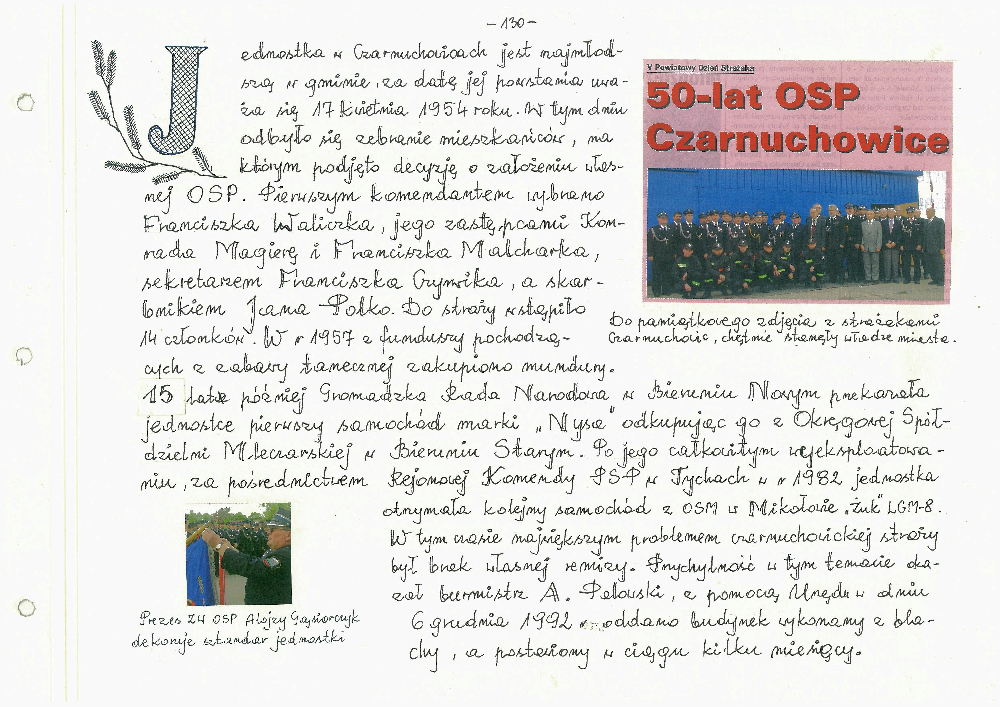 - 130 -
Jednostka w Czarnuchowicach jest najmłod-
szą w gminie, za datę jej powstania uwa-
ża się 17 kwietnia 1954 roku. W tym dniu
odbyło się zebranie mieszkańców, na
którym podjęto decyzję o założeniu włas-
nej OSP. Pierwszym komendantem wybrano
Franciszka Waliczka, jego zastępcami Kon-
rada Magierę i Franciszka Malcharka,
sekretarzem Franciszka Czyrwika, a skar-
bnikiem Jana Polko. Do straży wstąpiło
14 członków. W r 1957 z funduszy pochodzą-
cych z zabawy tanecznej zakupiono mundury.
15 lat później Gromadzka Rada Narodowa w Bieruniu Nowym przekazała
jednostce pierwszy samochód marki „Nysa" odkupując go z Okręgowej Spół-
dzielni Mleczarskiej w Bieruniu Starym. Po jego całkowitym wyeksploatowa-
niu, za pośrednictwem Rejonowej Komendy PSP w Tychach w r 1982 jednostka
otrzymała kolejny samochód z OSM w Mikołowie „Żuk" LGM-8.
W tym czasie największym problemem czarnuchowickiej straży
był brak własnej remizy. Przychylność w tym temacie oka-
zał burmistrz A. Pelowski, z pomocą Urzędu w dniu
6 grudnia 1992 oddano budynek wykonany z bla-
chy, a postawiony w ciągu kilku miesięcy.
V Powiatowy Dzień Strażaka
50-lat OSP
Czarnuchowice
Do pamiątkowego zdjęcia z strażakami
Czarnuchowic, chętnie stanęły władze miasta.
Prezes ZH OSP Alojzy Gąsiorczyk
dekoruje sztandar jednostki